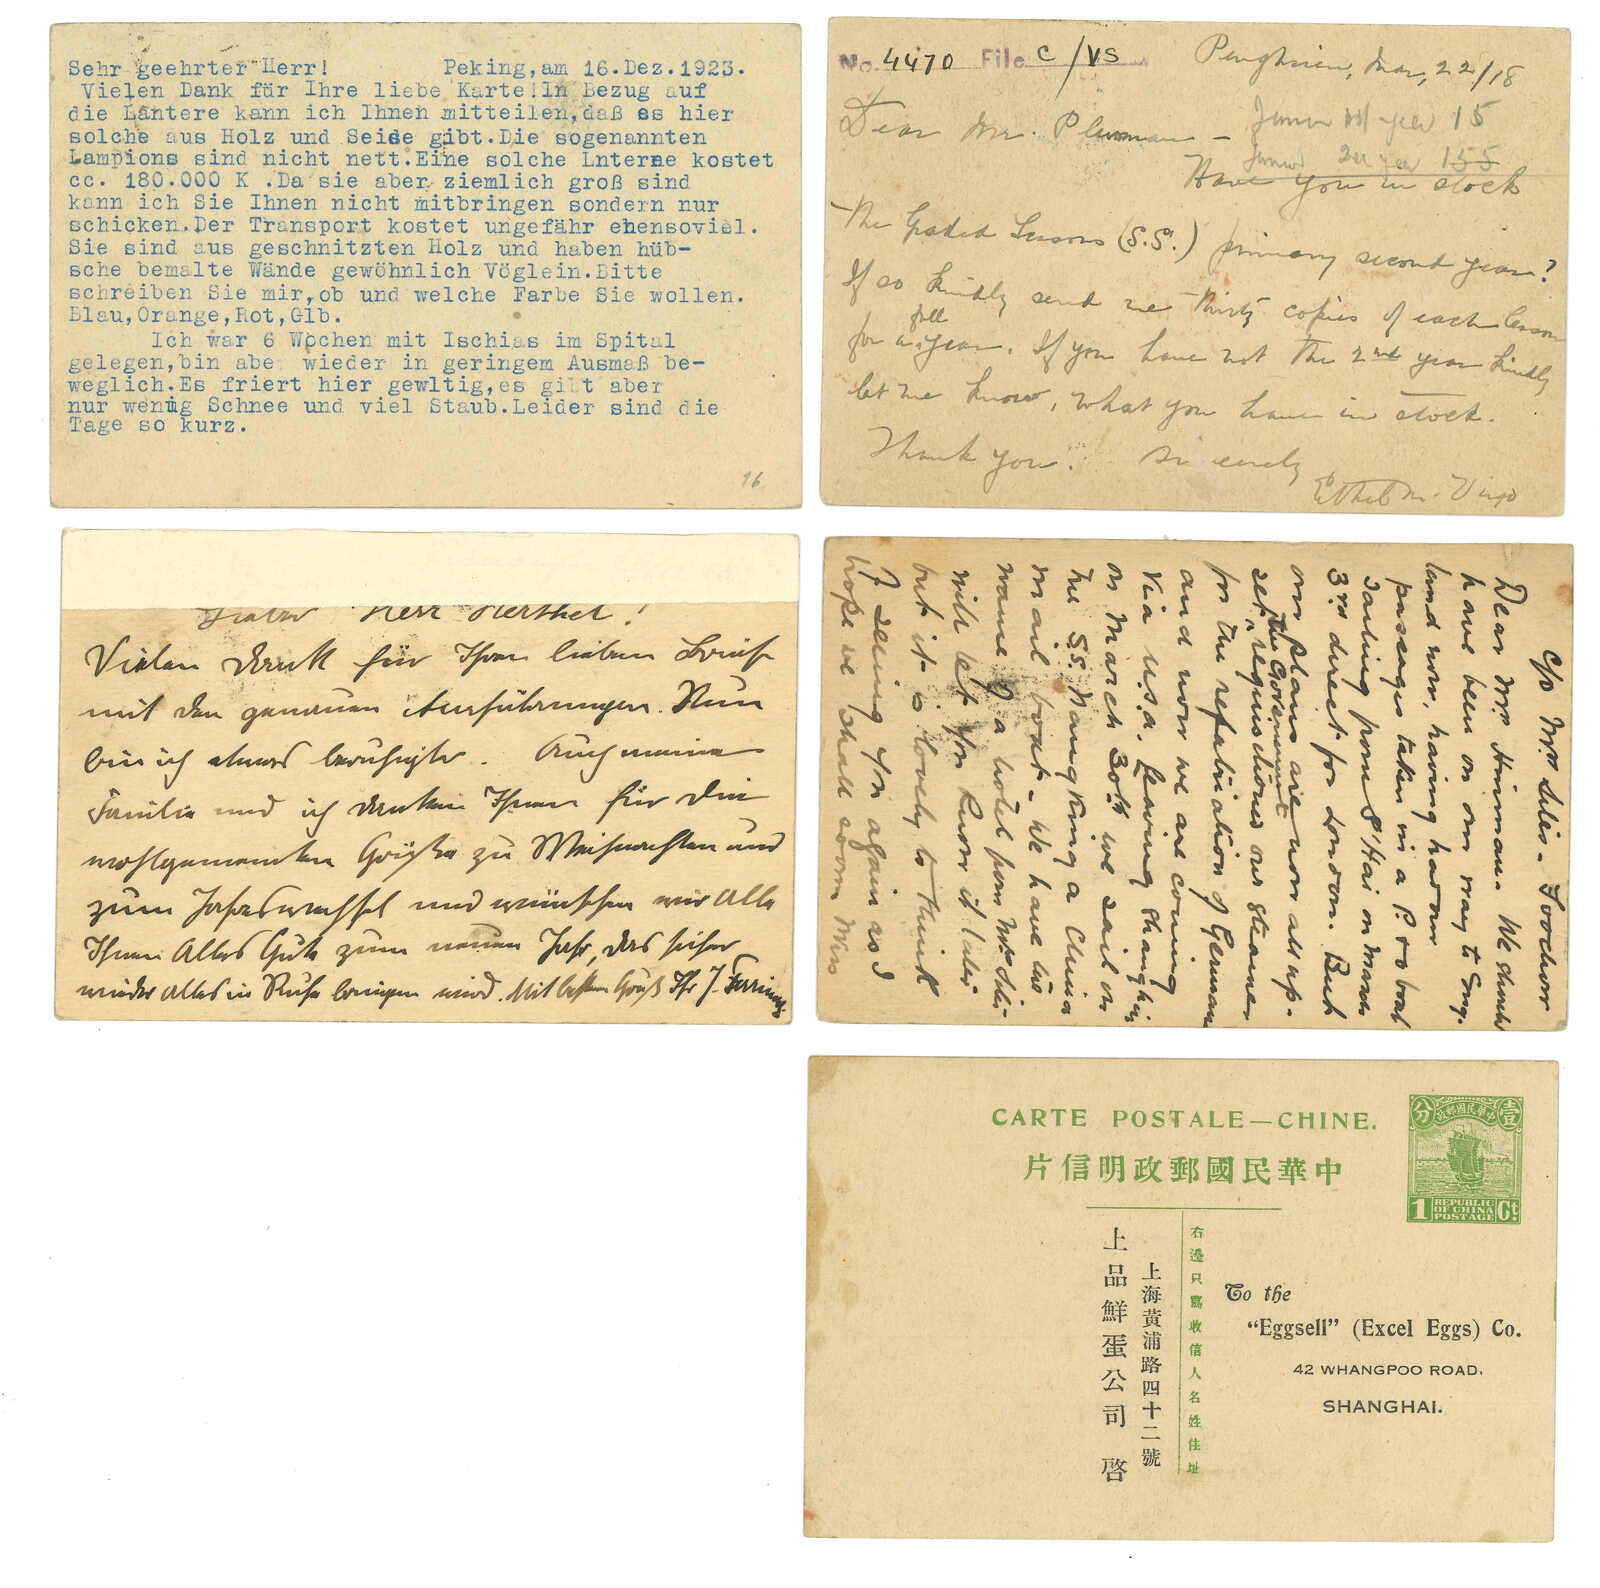 Sehr geehrter Herr! Peking,am 16.Dez.1923.
Vielen Dank für Ihre liebe Karte!In Bezug auf
die Lantere kann ich Ihnen mitteilen,daß es hier
solche aus Holz und Seide gibt.Die sogenannten
Lampions sind nicht nett.Eine solche Lnterne kostet
cc. 180.000 K .Da sie aber ziemlich groß sind
kann ich Sie Ihnen nicht mitbringen sondern nur
schicken.Der Transport kostet ungefähr ehensoviel.
Sie sind aus geschnitzten Holz und haben hüb-
sche bemalte Wände gewöhnlich Vöglein.Bitte
schreiben Sie mir,ob und welche Farbe Sie wollen.
Blau,Orange,Rot,Glb.
Ich war 6 Wochen mit Ischias im Spital
gelegen,bin abe wieder in geringem Ausmaß be-
weglich.Es friert hier gewltig,es gibt aber
nur wenig Schnee und viel Staub.Leider sind die
Tage so kurz.
16
No. 4470 File C/VS
Mar, 22/18
Junior 1st year 15
Dear Mr. Plumman -
Junior 2nd year 155
Have you in stock
The Graded Lessons (S.S.) primary second year?
If so kindly send me thirty copies of each lesson
for a full year. If you have not the 2nd year kindly
let me know, what you have in stock.
Thank you. Sincerely
Ethel M.
Lieber Herr Herthel!
Vielen Dank für Ihren lieben Brief
mit den genauen Ausführungen. Nun
bin ich etwas beruhigter. Auch meine
Familie und ich danken Ihnen für die
wohlgemeinten Grüße zu Weihnachten und
zum Jahreswechsel und wünschen wir Alle
Ihnen Alles Gute zum neuen Jahr, das sicher
wieder alles in Ruhe bringen wird. Mit besten Gruß Ihr J.
c/o Mrs Sites - Foochow
Dear Mrs Hinman - We should
have been on our way to Eng-
land now, having had our
passages taken in a P. & O boat
sailing from S'Hai on March
3rd direct for London. But
our plans are now all up-
set, the Government requisitioned our steamer
for the repatriation of Germans
and now we are coming
via U.S.A. leaving Shanghai
on March 30th we sail on
the SS. Nanking a China
mail boat - We have the
name of a hotel from Mrs Sites
will let you know it later
but it is lovely to think
of seeing you again as I
hope we shall soon. Miss
CARTE POSTALE—CHINE.
中華民國郵政明信片
中華民國郵政
壹
分
1 REPUBLIC OF CHINA POSTAGE Ct.
右邊只寫收信人名姓住址
上海黃浦路四十二號
上品鮮蛋公司 啓
To the
"Eggsell" (Excel Eggs) Co.
42 WHANGPOO ROAD,
SHANGHAI.